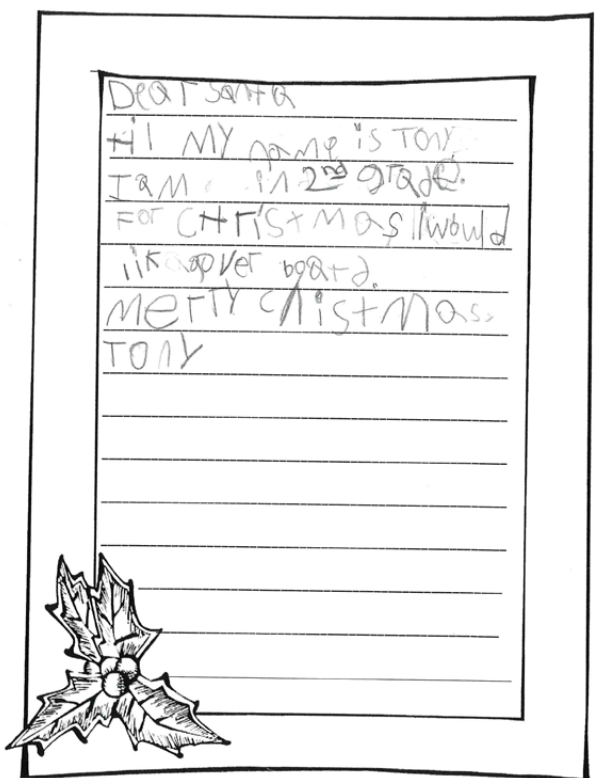 Dear Santa
Hi! MY name is TONY
I aM in 2nd grade.
For CHristMas I would
lik a over board.
Merry Christmas.
TONY